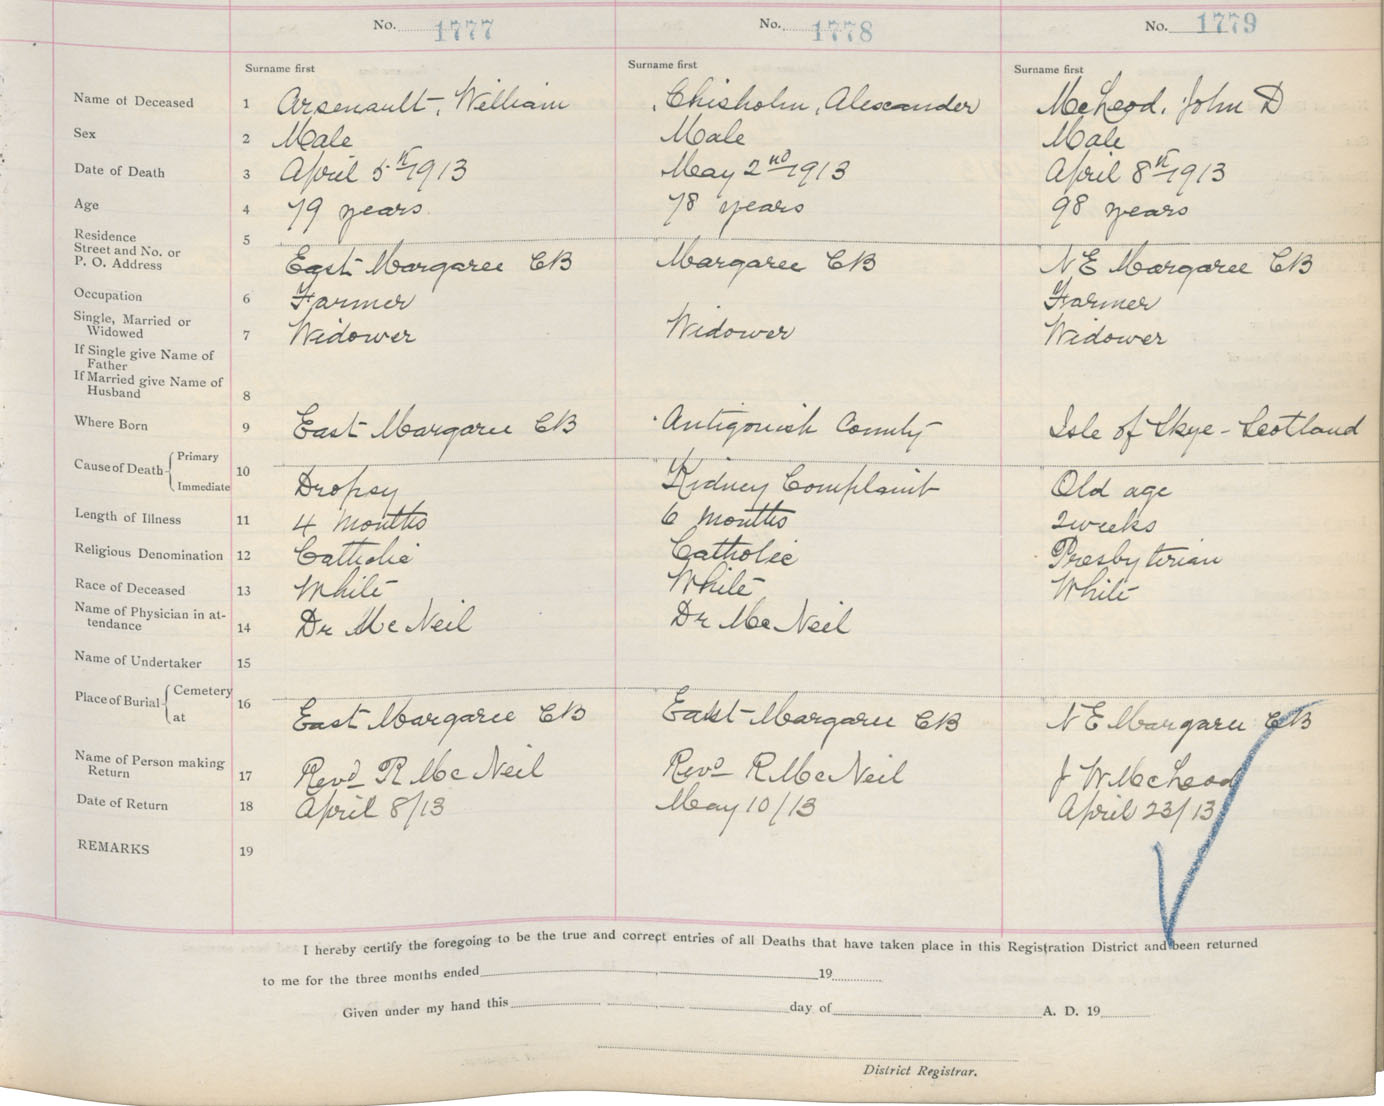 No. 1777 No. 1778 No. 1779
Surname first Surname first Surname first
Name of Deceased 1 Arsenault, William Chisholm, Alexander McLeod, John D
Sex 2 Male Male Male
Date of Death 3 April 5th 1913 May 2nd 1913 April 8th 1913
Age 4 79 years 78 years 98 years
Residence 5
Street and No. or
P. O. Address East Margaree CB Margaree CB N E Margaree CB
Occupation 6 Farmer Farmer
Single, Married or
Widowed 7 Widower Widower Widower
If Single give Name of
Father
If Married give Name of
Husband 8
Where Born 9 East Margaree CB Antigonish County Isle of Skye - Scotland
Cause of Death Primary 10
Immediate Dropsy Kidney Complaint Old age
Length of Illness 11 4 months 6 months 2 weeks
Religious Denomination 12 Catholic Catholic Presbyterian
Race of Deceased 13 White White White
Name of Physician in at-
tendance 14 Dr McNeil Dr McNeil
Name of Undertaker 15
Place of Burial Cemetery 16
at East Margaree CB East Margaree CB N E Margaree CB
Name of Person making
Return 17 Revd R McNeil Revd R McNeil J W McLeod
Date of Return 18 April 8/13 May 10/13 April 23/13
REMARKS 19
I hereby certify the foregoing to be the true and correct entries of all Deaths that have taken place in this Registration District and been returned
to me for the three months ended 19
Given under my hand this day of A. D. 19
District Registrar.